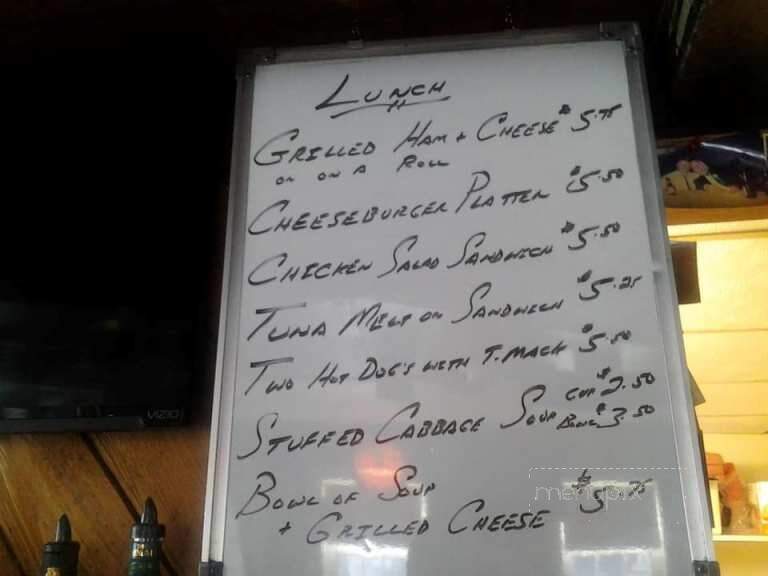 LUNCH
GRILLED HAM + CHEESE $5.75
OR ON A ROLL
CHEESEBURGER PLATTER $5.50
CHICKEN SALAD SANDWICH $5.50
TUNA MELT OR SANDWICH $5.25
TWO HOT DOG'S WITH T.MACK $5.50
STUFFED CABBAGE SOUP CUP $2.50
BOWL $3.50
BOWL OF SOUP $5.75
+ GRILLED CHEESE
VIZIO
menupix